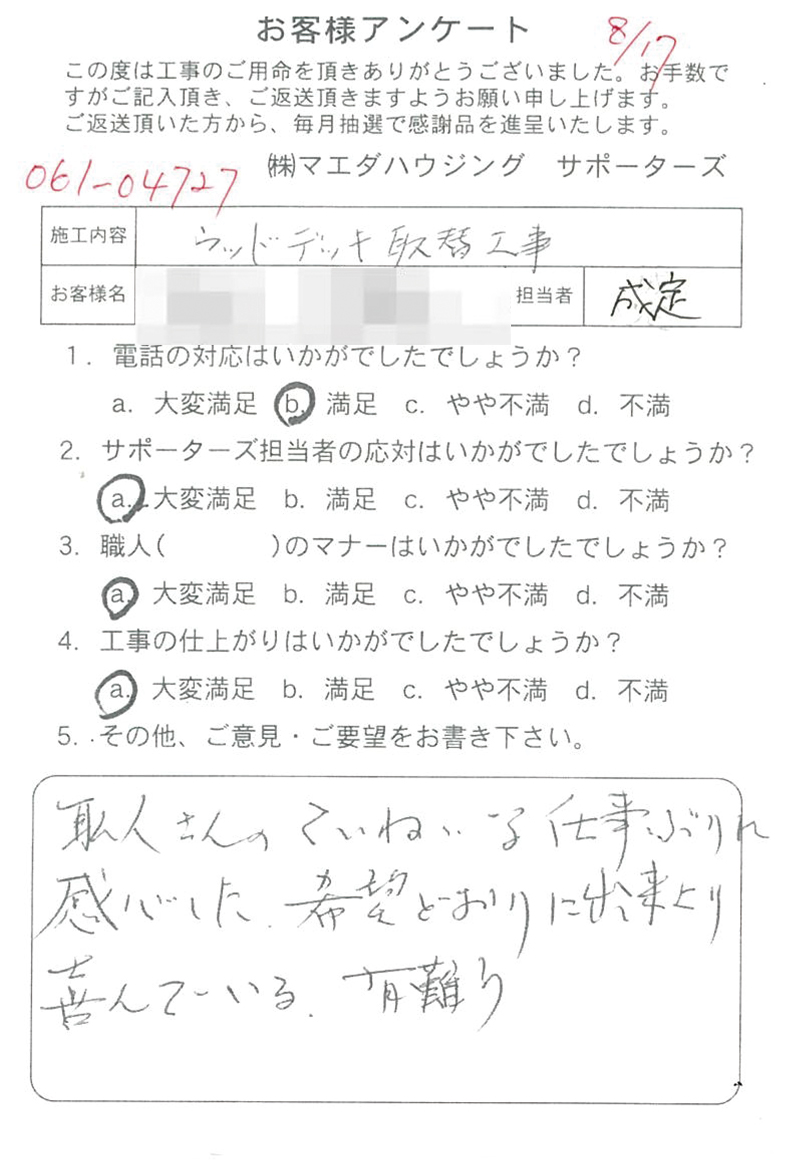 お客様アンケート
8/17
この度は工事のご用命を頂きありがとうございました。お手数で
すがご記入頂き、ご返送頂きますようお願い申し上げます。
ご返送頂いた方から、毎月抽選で感謝品を進呈いたします。
061-04727
㈱マエダハウジング サポーターズ
施工内容 ウッドデッキ取替工事
お客様名 担当者 成定
1. 電話の対応はいかがでしたでしょうか?
a. 大変満足 b. 満足 c. やや不満 d. 不満
2. サポーターズ担当者の応対はいかがでしたでしょうか?
a. 大変満足 b. 満足 c. やや不満 d. 不満
3. 職人( )のマナーはいかがでしたでしょうか?
a. 大変満足 b. 満足 c. やや不満 d. 不満
4. 工事の仕上がりはいかがでしたでしょうか?
a. 大変満足 b. 満足 c. やや不満 d. 不満
5. その他、ご意見・ご要望をお書き下さい。
職人さんのていねいな仕事ぶりに
感心した. 希望どおりに出来上り
喜んでいる. 有難う